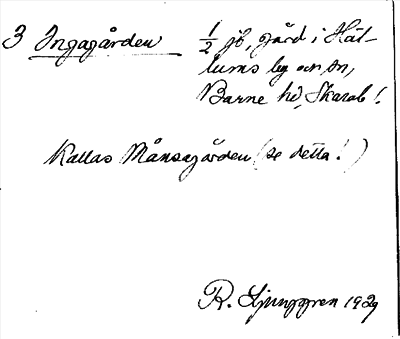 3 Ingagården 1/2 jb, gård i Häl-
lums by och sn,
Barne hd, Skarab!
Kallas Månsagården (se detta!)
R. Ljunggren 1929